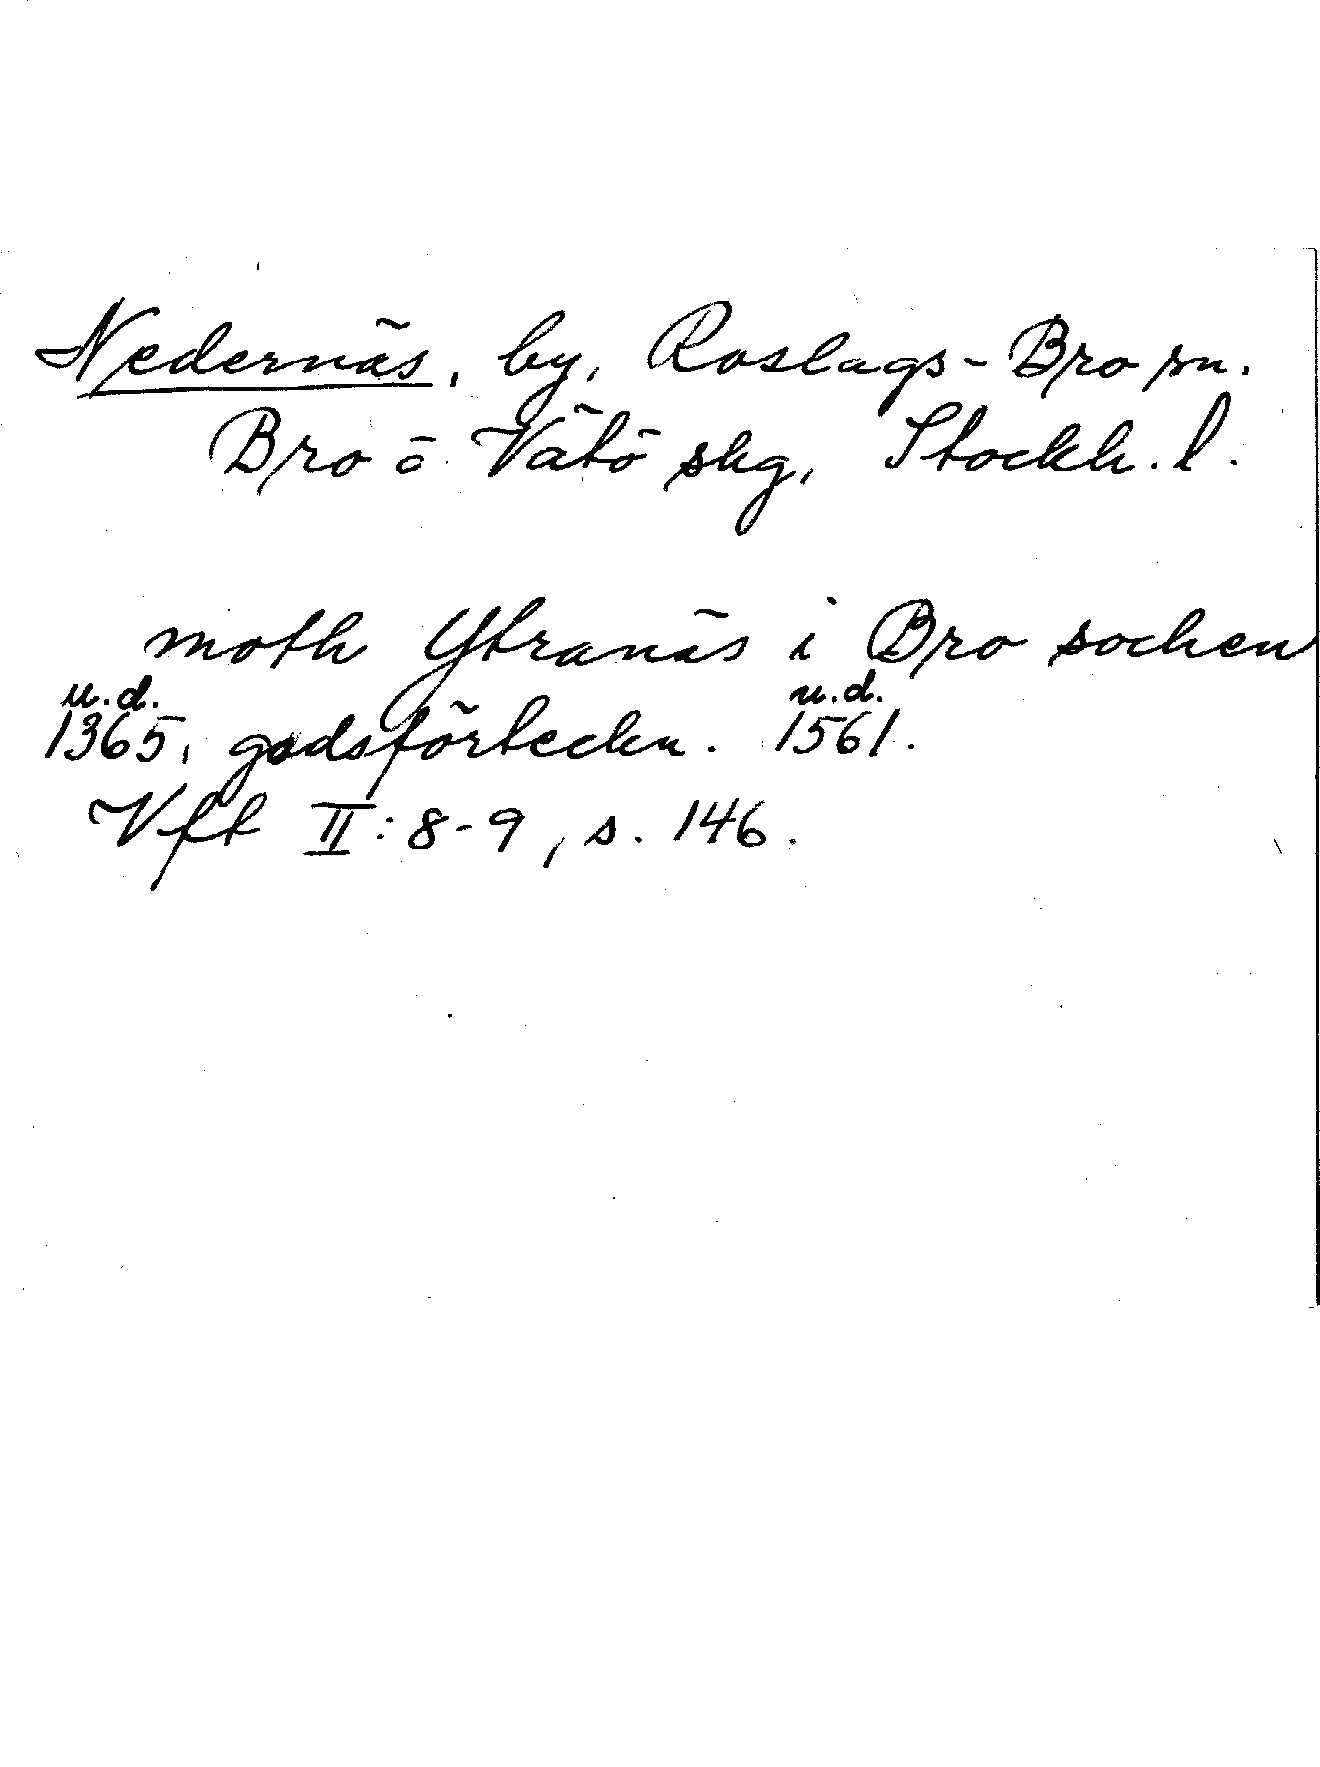 Nedernäs, by, Roslags-Bro sn.
Bro o. Vätö skg, Stockh. l.
moth Ytranäs i Bro sochen
u.d. u.d.
1365, godsförteckn. 1561.
Vft II: 8-9, s. 146.